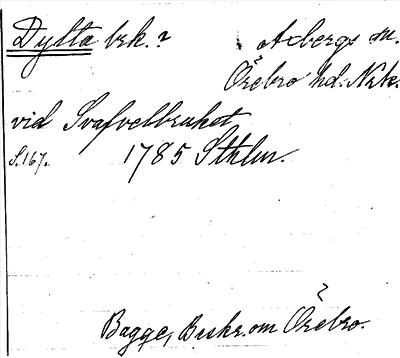 Dylta brk.? Axbergs sn.
Örebro hd. Nrk.
vid Svafvelbruket
S. 167. 1785 Sthlm.
?
Bagge, Beskr. om Örebro.